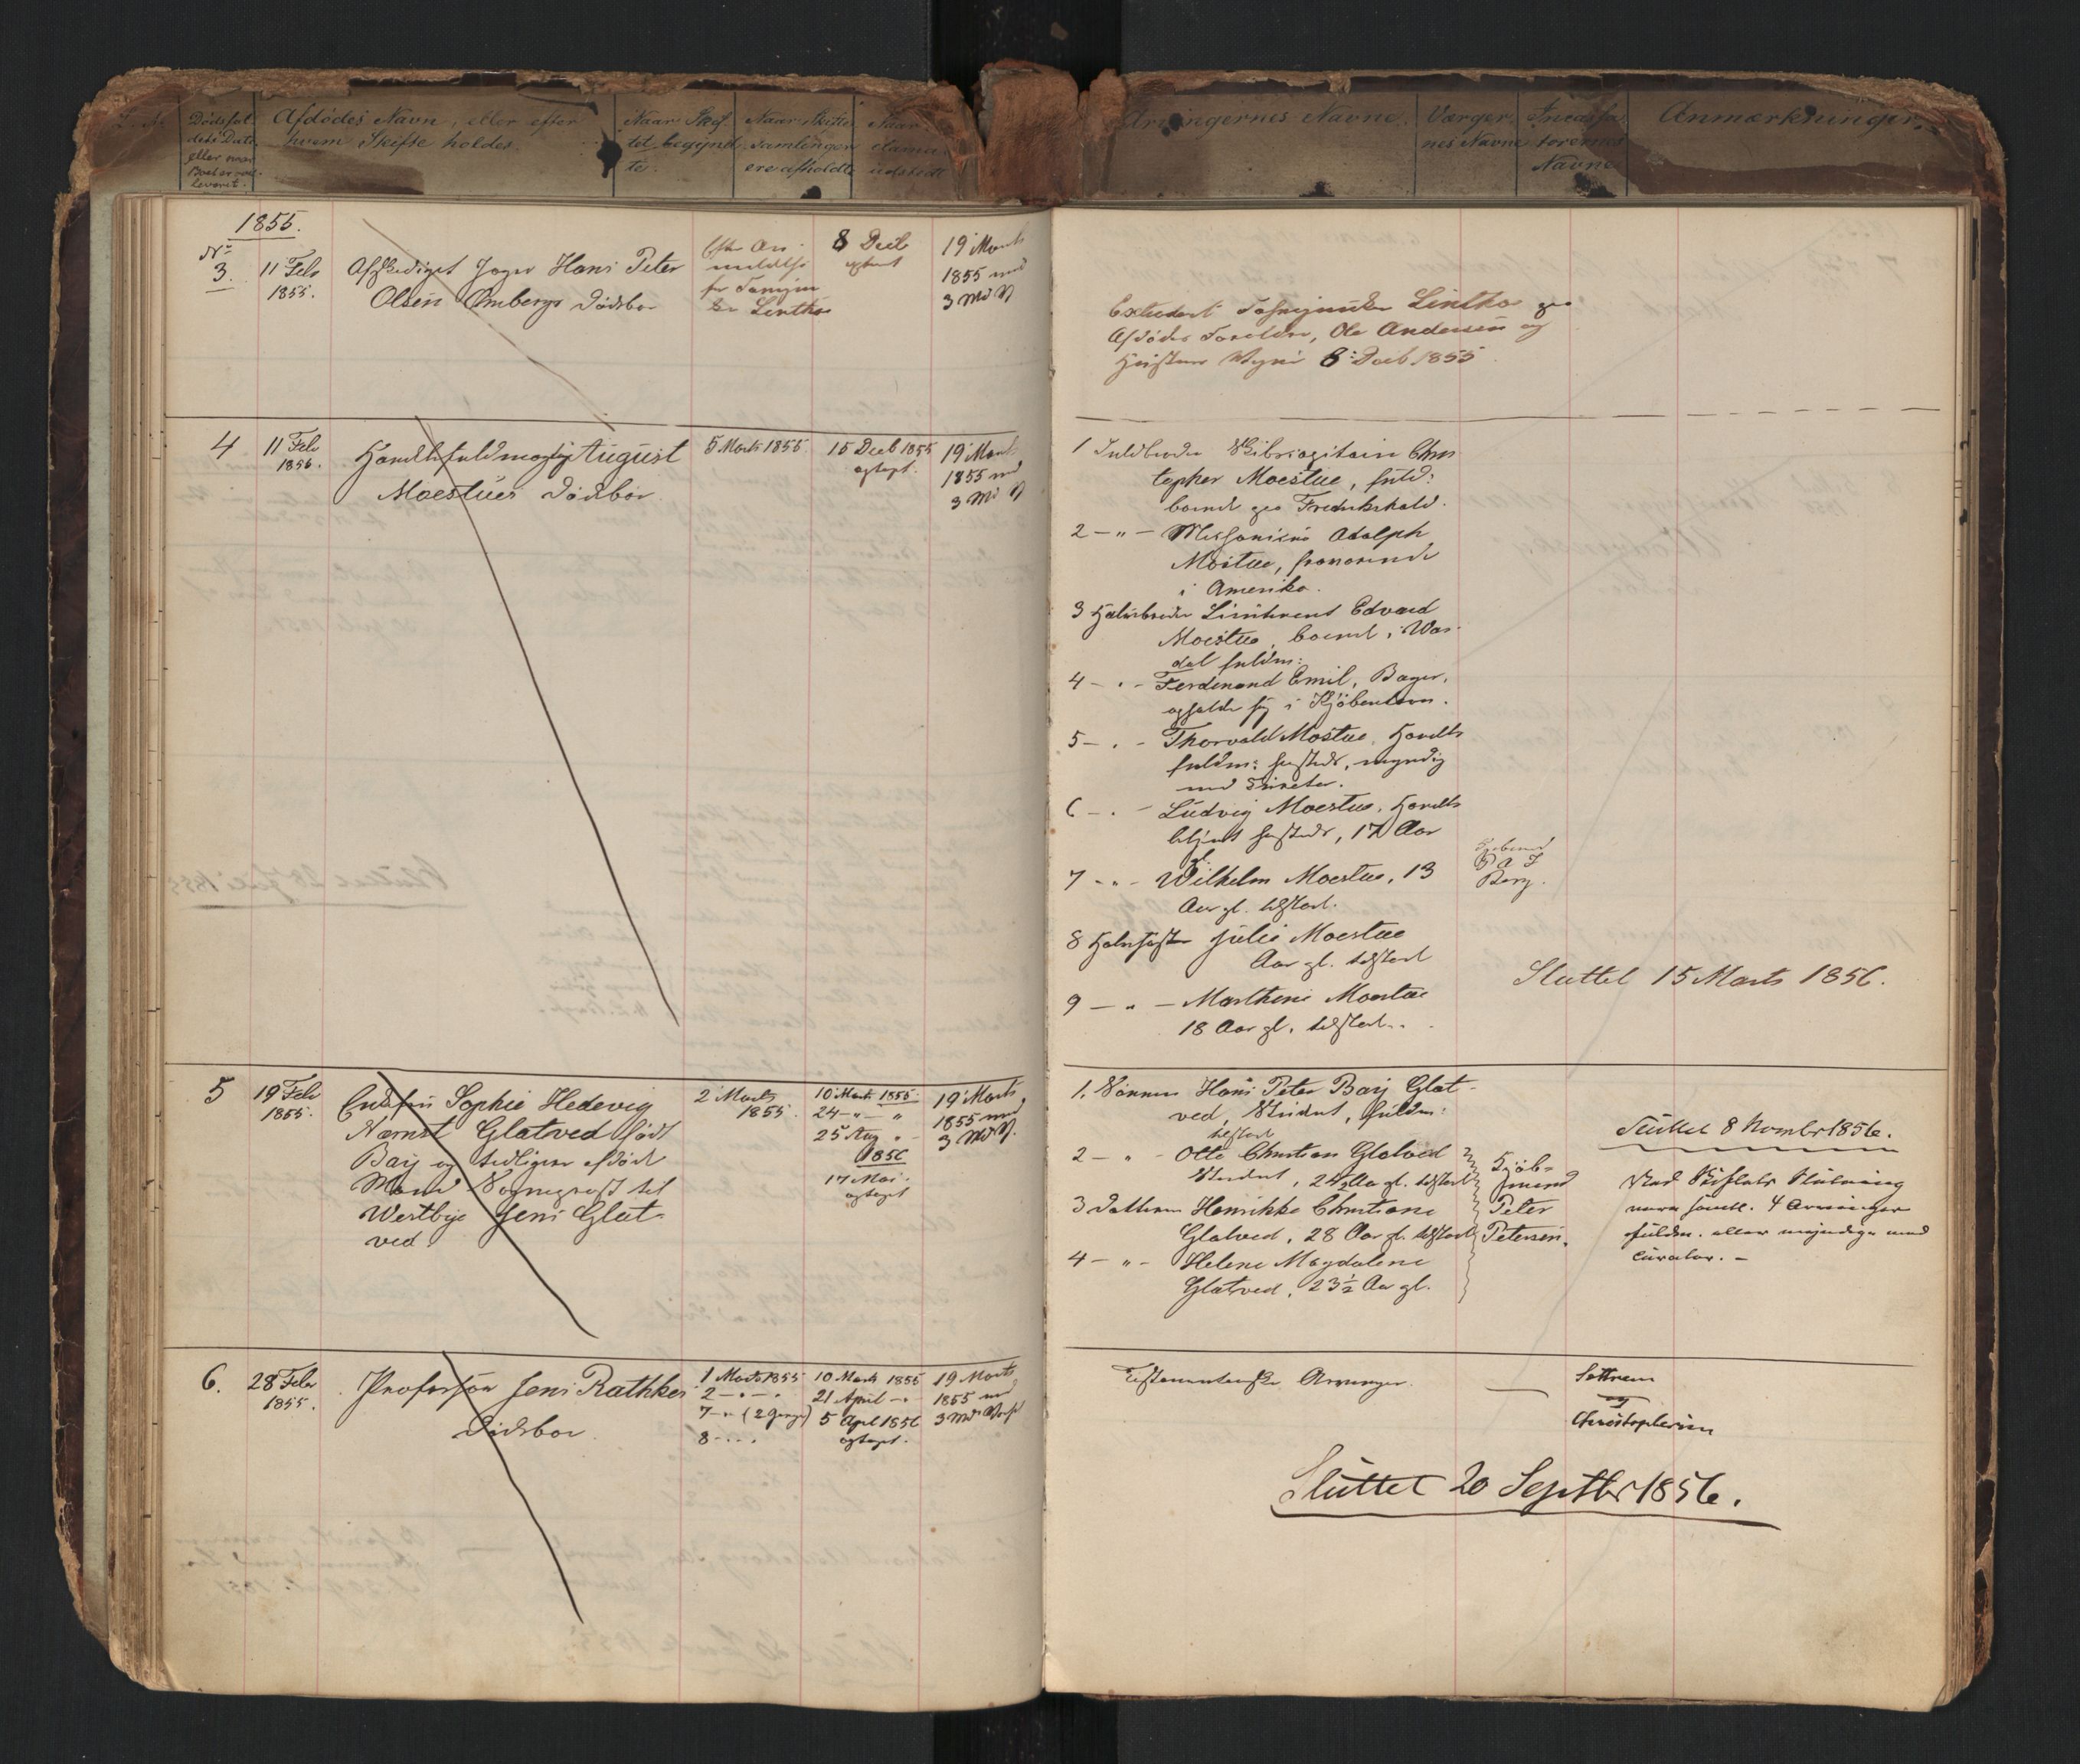 Dødsfal
dets Dato
eller naar
Boet er ind
leveret.
Afdødes Navn, eller efter
hvem Skifte holdes.
Naar Skif
tet begynd
te.
Naar Skifte
Samlingen
ere afholdte
Naar
clama
udstedt
Arvingernes Navne.
Værger
nes Navne
Incassa
torernes
Navne
Anmærkninger.
1855.
No
3.
11 Feb
1855.
Afskediget Jæger Hans Peter
Olsen Ombergs Dødsbo
efter An-
meldelse
fra
Linthoe
8 Decb
optaget
19 Marts
1855 med
3 Md V
Extradert Linthoe
Afdødes Forældre, Ole Andersen og
8 Decb 1855
4
11 Feb
1855.
Handelsfuldmægtig August
Moestues Dødsbo
5 Marts 1855
15 Decb 1855
optaget.
19 Marts
1855 md
3 Md V
1 Fuldbroder Skibscapitain Chris
topher Moestue, fuld:
boende paa Fredrikshald.
2 - " - Adolph
Mostue, fraværende
i Amerika.
3 Halvbroder Lieutenant Edvard
Moestue, boende i Vær-
dal fuldm:
4 - " - Ferdinand Emil, Bager,
opholder sig i Kjöbenhavn.
5 - " - Thorvald Mostue, Handels
fuldm: hersteds, myndig
med Curator.
6 - " - Ludvig Moestue, Handels
betjent hersteds, 17 Aar
gl.
7 - " - Wilhelm Moestue, 13
Aar gl. tilsted.
Kjøbmd
P A J
Berg.
8 Halvsøster Julie Moestue
Aar gl. tilsted
9 - " - Marthine Moestue
18 Aar gl. tilsted.
Sluttet 15 Marts 1856.
5
19 Feb
1855.
Enkefru Sophie Hedevig
Nærnst Glatved født
Baij og tidligere afdøde
Mand Sogneprest til
Westbye Jens Glat-
ved.
2 Marts
1855.
10 Marts 1855.
24 - " - "
25 Aug "
1856
17 Mai.
optaget
19 Marts
1855 med
3 Md V.
1. Sønnen Hans Peter Baij Glat-
ved, Student, fuldm:
tilsted
2 - " - Otto Christian Glatved
Student, 24½ Aar gl. tilsted
3 Datteren Henrikke Christiane
Glatved, 28 Aar gl. tilsted
4 - " - Helene Magdalene
Glatved, 23½ Aar gl.
Kjöb-
mand
Peter
Petersen.
Sluttet 8 Novembr 1856.
Ved Skiftets Slutning
vare samtl. 4 Arvinger
fuldm. eller myndige med
Curator. -
6.
28 Febr
1855.
Professor Jens Rathkes
Dødsboe
1 Marts 1855
2 - " - "
7 - " (2 Gange)
8 - " "
10 Marts 1855
21 April - "
5 April 1856
optaget.
19 Marts
1855 med
3 Mds Varsel
Testamentariske Arvinger.
og
Christophersen
Sluttet 20 Septbr 1856.